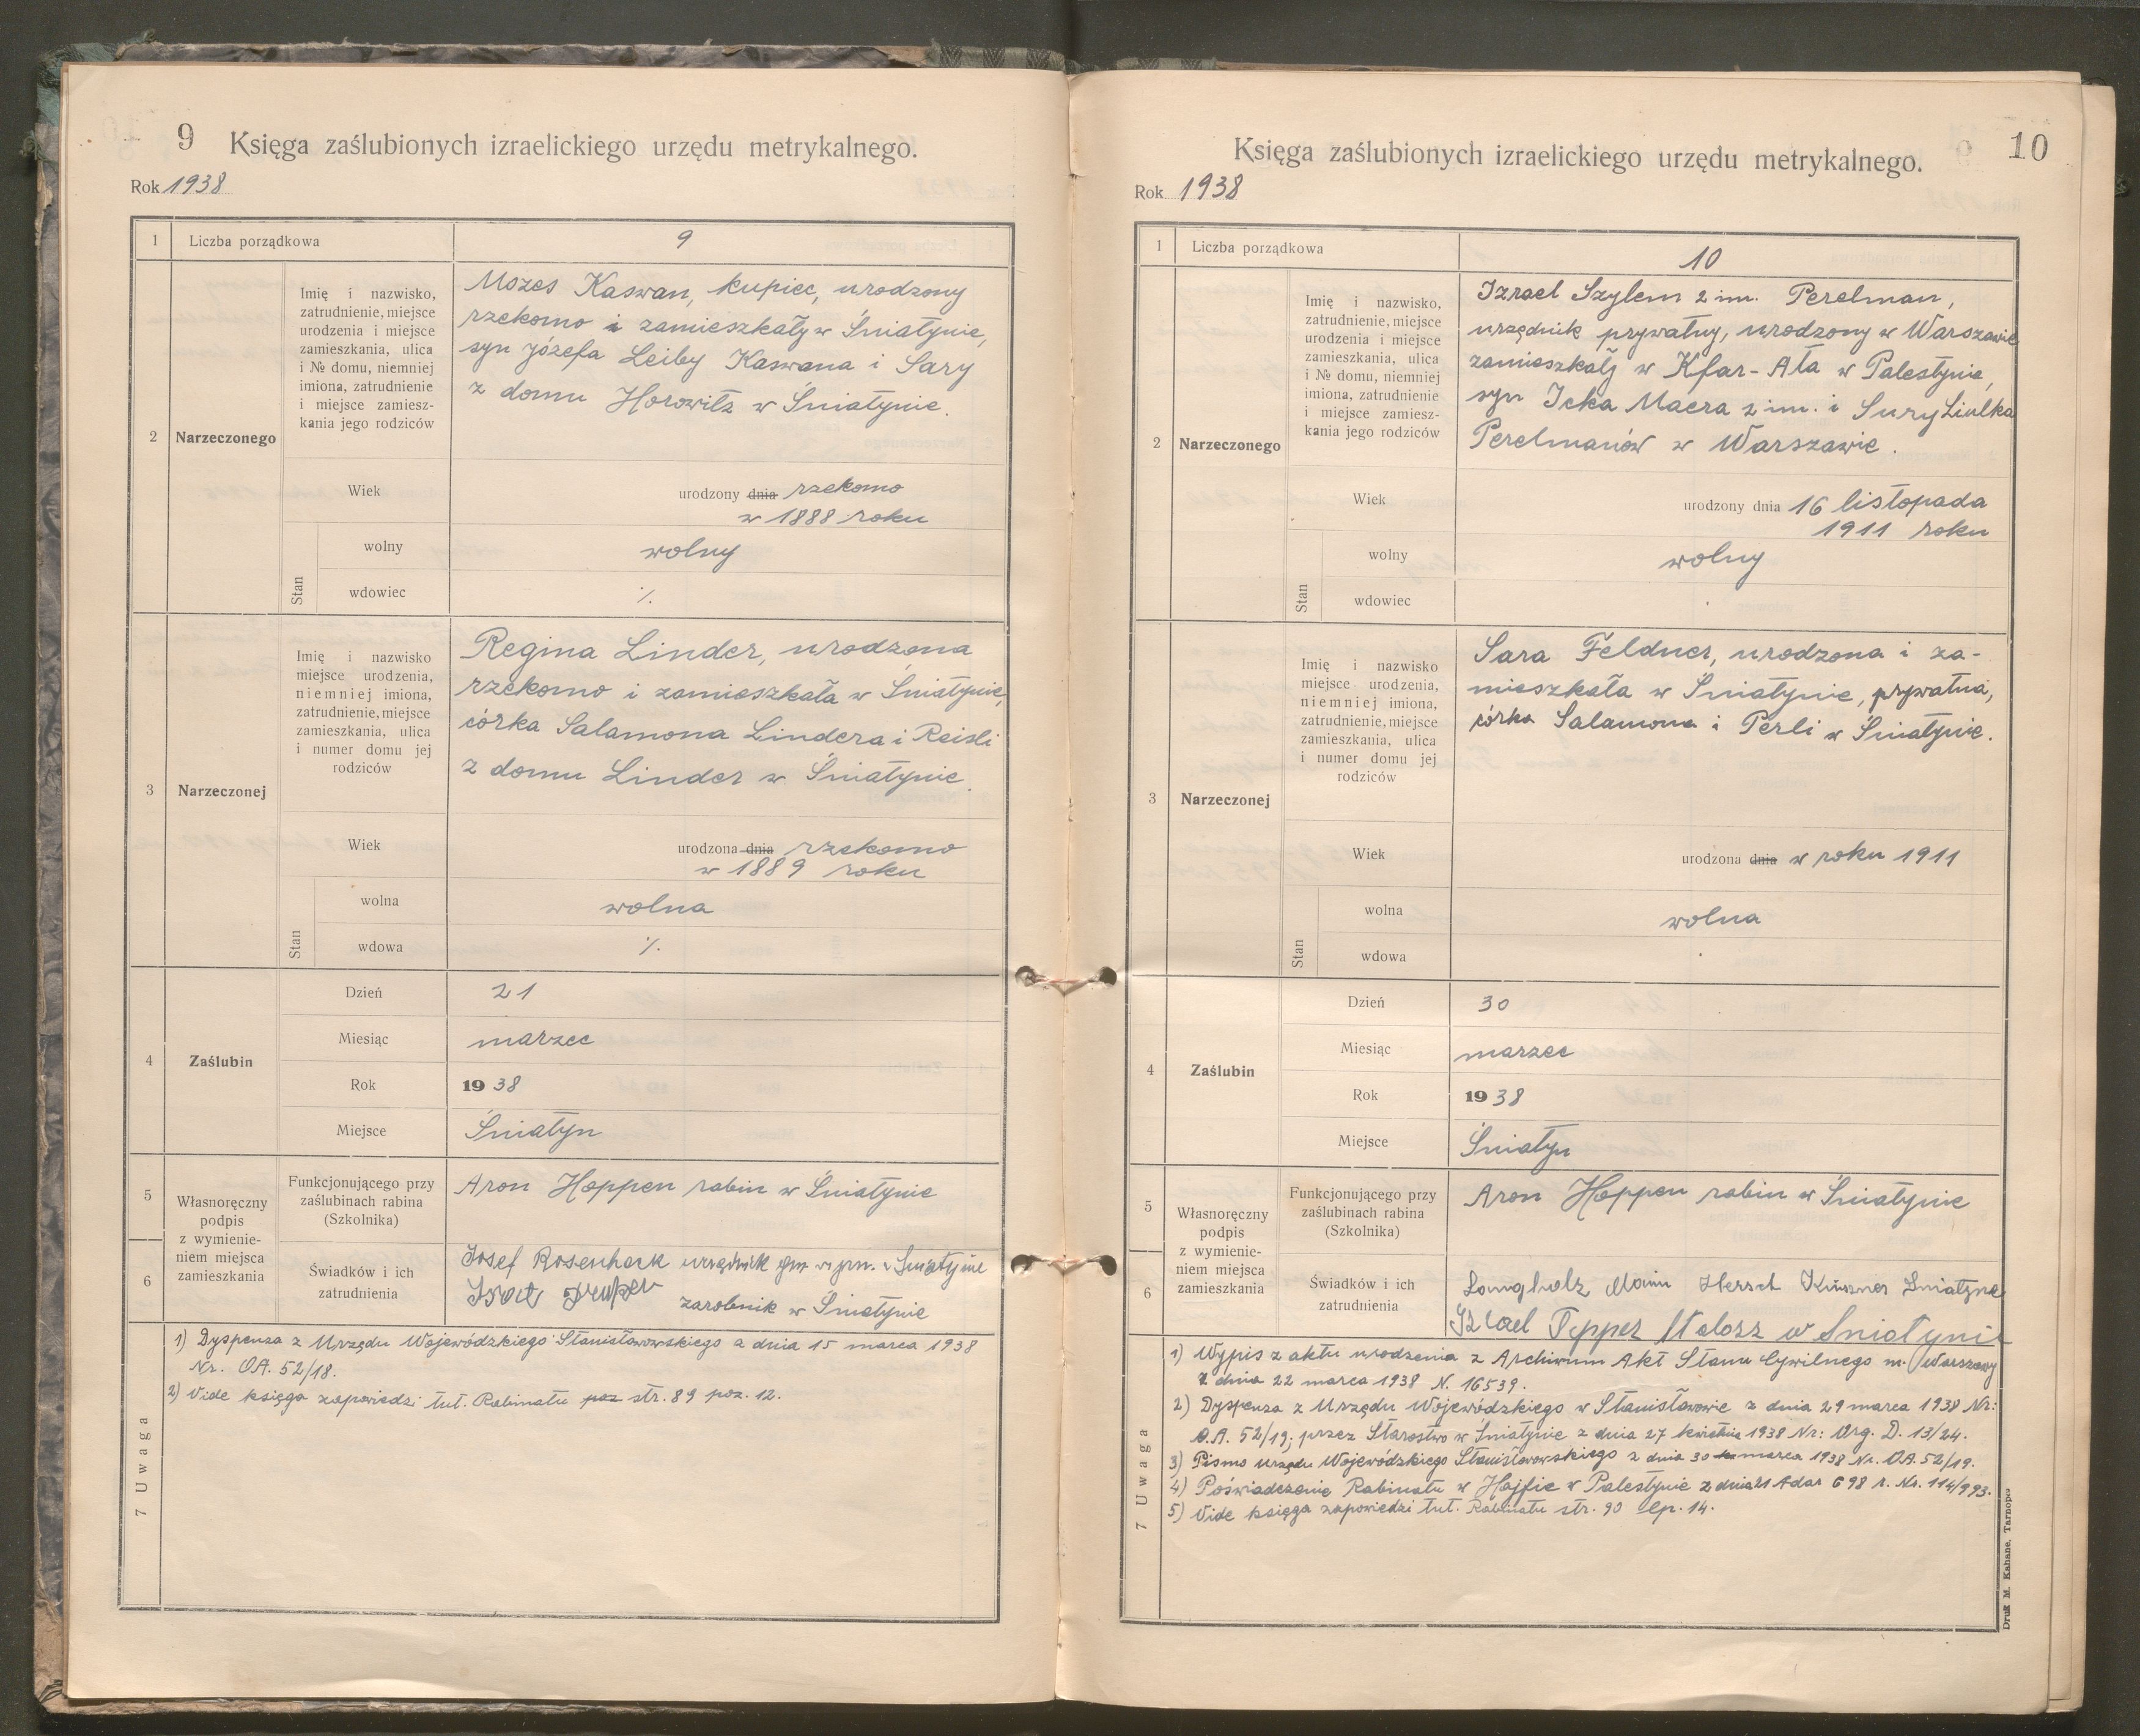 9 Księga zaślubionych izraelickiego urzędu metrykalnego.
Rok 1938
1 Liczba porządkowa 9
2 Narzeczonego
Imię i nazwisko,
zatrudnienie, miejsce
urodzenia i miejsce
zamieszkania, ulica
i № domu, niemniej
imiona, zatrudnienie
i miejsce zamiesz-
kania jego rodziców
Mozes Kaswan, kupiec, urodzony
rzekomo i zamieszkały w Śniatynie,
syn Józefa Leiby Kaswana i Sary
z domu Horowitz w Śniatynie.
Wiek
urodzony dnia rzekomo
w 1888 roku
Stan
wolny wolny
wdowiec ./.
3 Narzeczonej
Imię i nazwisko
miejsce urodzenia,
niemniej imiona,
zatrudnienie, miejsce
zamieszkania, ulica
i numer domu jej
rodziców
Regina Linder, urodzona
rzekomo i zamieszkała w Śniatynie,
córka Salamona Lindera i Reisli
z domu Linder w Śniatynie.
Wiek
urodzona dnia rzekomo
w 1889 roku
Stan
wolna wolna
wdowa ./.
4 Zaślubin
Dzień 21
Miesiąc marzec
Rok 1938
Miejsce Śniatyn
5
6
Własnoręczny
podpis
z wymienie-
niem miejsca
zamieszkania
Funkcjonującego przy
zaślubinach rabina
(Szkolnika)
Aron Hoppen rabin w Śniatynie
Świadków i ich
zatrudnienia
Josef Rosenheck urzędnik w Śniatynie
zarobnik w Śniatynie
7 Uwaga
1) Dyspensa z Urzędu Wojewódzkiego Stanisławowskiego a dnia 15 marca 1938
Nr. OA. 52/18.
2) Vide księga zapowiedzi tut. Rabinatu poz str. 89 poz. 12.
Księga zaślubionych izraelickiego urzędu metrykalnego. 10
Rok 1938
1 Liczba porządkowa 10
2 Narzeczonego
Imię i nazwisko,
zatrudnienie, miejsce
urodzenia i miejsce
zamieszkania, ulica
i № domu, niemniej
imiona, zatrudnienie
i miejsce zamiesz-
kania jego rodziców
Izrael Szylem 2 im. Perelman,
urzędnik prywatny, urodzony w Warszawie
zamieszkały w Kfar-Ata w Palestynie,
syn Icka Maera 2 im. i Sury Liulka
Perelmanów w Warszawie.
Wiek
urodzony dnia 16 listopada
1911 roku
Stan
wolny wolny
wdowiec
3 Narzeczonej
Imię i nazwisko
miejsce urodzenia,
niemniej imiona,
zatrudnienie, miejsce
zamieszkania, ulica
i numer domu jej
rodziców
Sara Feldner, urodzona i za-
mieszkała w Śniatynie, prywatna,
córka Salamona i Perli w Śniatynie.
Wiek
urodzona dnia w roku 1911
Stan
wolna wolna
wdowa
4 Zaślubin
Dzień 30
Miesiąc marzec
Rok 1938
Miejsce Śniatyn
5
6
Własnoręczny
podpis
z wymienie-
niem miejsca
zamieszkania
Funkcjonującego przy
zaślubinach rabina
(Szkolnika)
Aron Hoppen rabin w Śniatynie
Świadków i ich
zatrudnienia
Langholz Hersch Kuszner Śniatyn
Izrael Pepper w Sniatynie
7 Uwaga
1) Wypis z aktu urodzenia z Archiwum Akt Stanu Cywilnego m. Warszawy
z dnia 22 marca 1938 N. 16539.
2) Dyspensa z Urzędu Wojewódzkiego w Stanisławowie z dnia 29 marca 1938 Nr:
O.A. 52/19; przez Starostwo w Śniatynie z dnia 27 kwietnia 1938 Nr: Org. D. 13/24.
3) Pismo Urzędu Wojewódzkiego Stanisławowskiego z dnia 30 marca 1938 Nr. OA. 52/19.
4) Poświadczenie Rabinatu w Hajfie w Palestynie z dnia 21 Adar 698 r. Nr. 114/993.
5) Vide księga zapowiedzi tut. Rabinatu str. 90 lp. 14.
Druk M. Kahane, Tarnopol